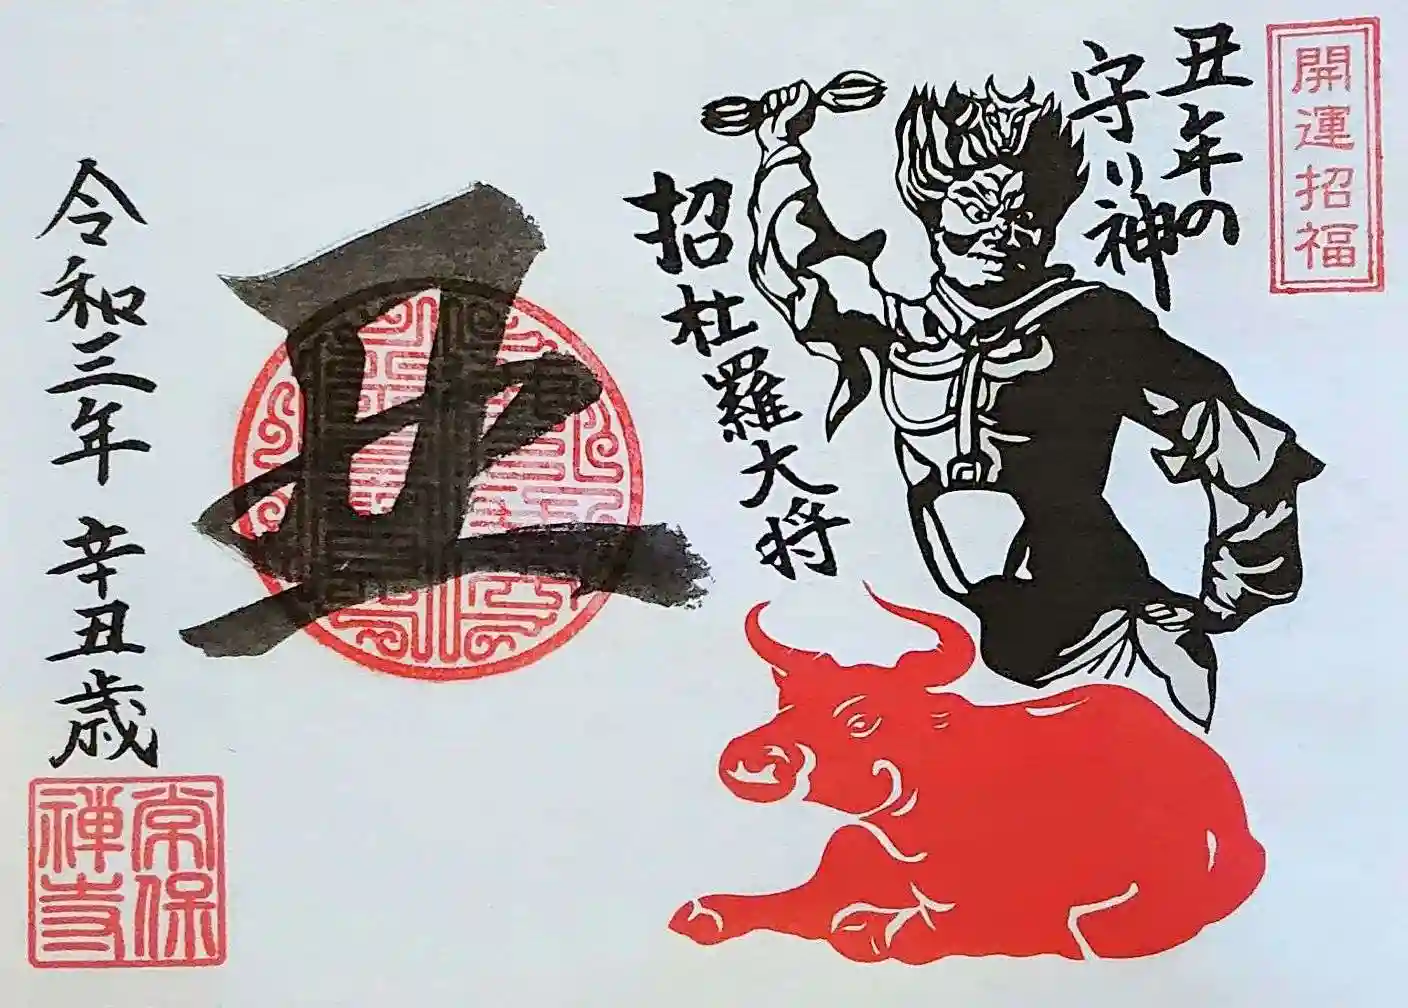 開運招福
丑年の
守り神
招杜羅大将
丑
令和三年 辛丑歳
常保
禅寺